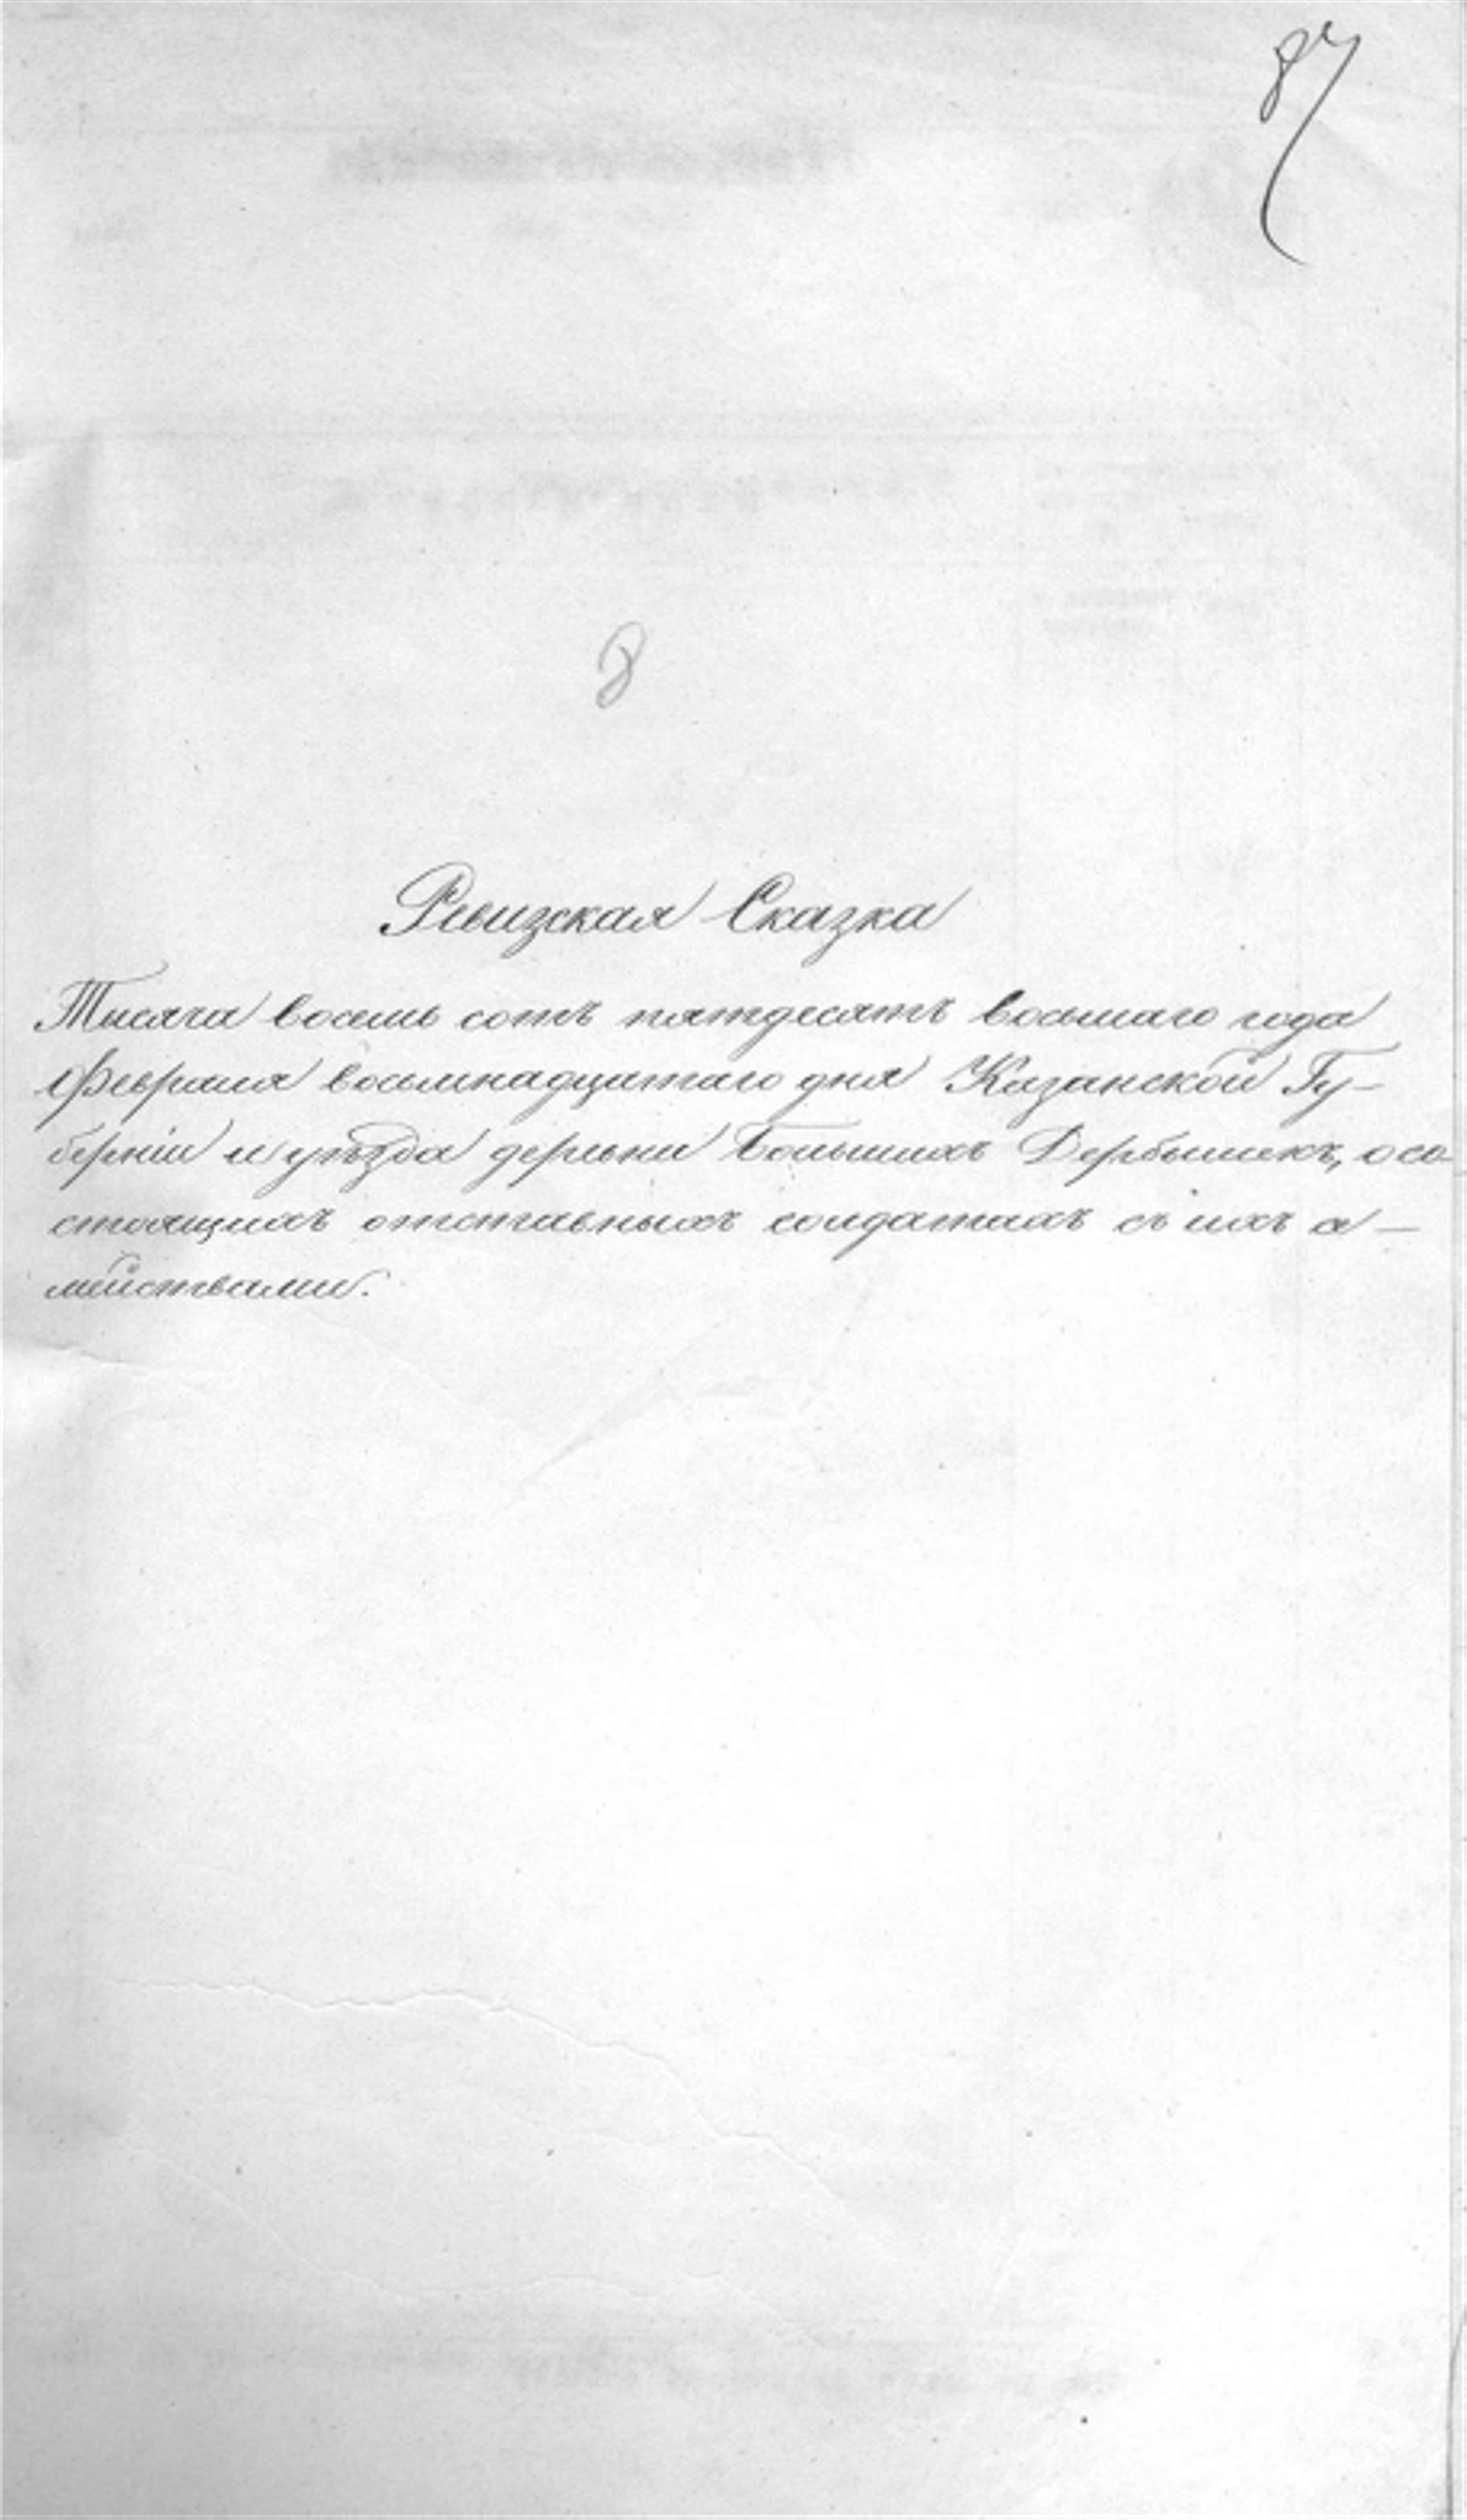 87
8
Ревизская Сказка
Тысяча восемь сотъ пятдесятъ восьмаго года
Февраля восьмнадцатаго дня Казанской Гу-
берніи и уѣзда деревни Большихъ Дербышекъ, о со-
стоящихъ отставныхъ солдатахъ съ ихъ се-
мействами.